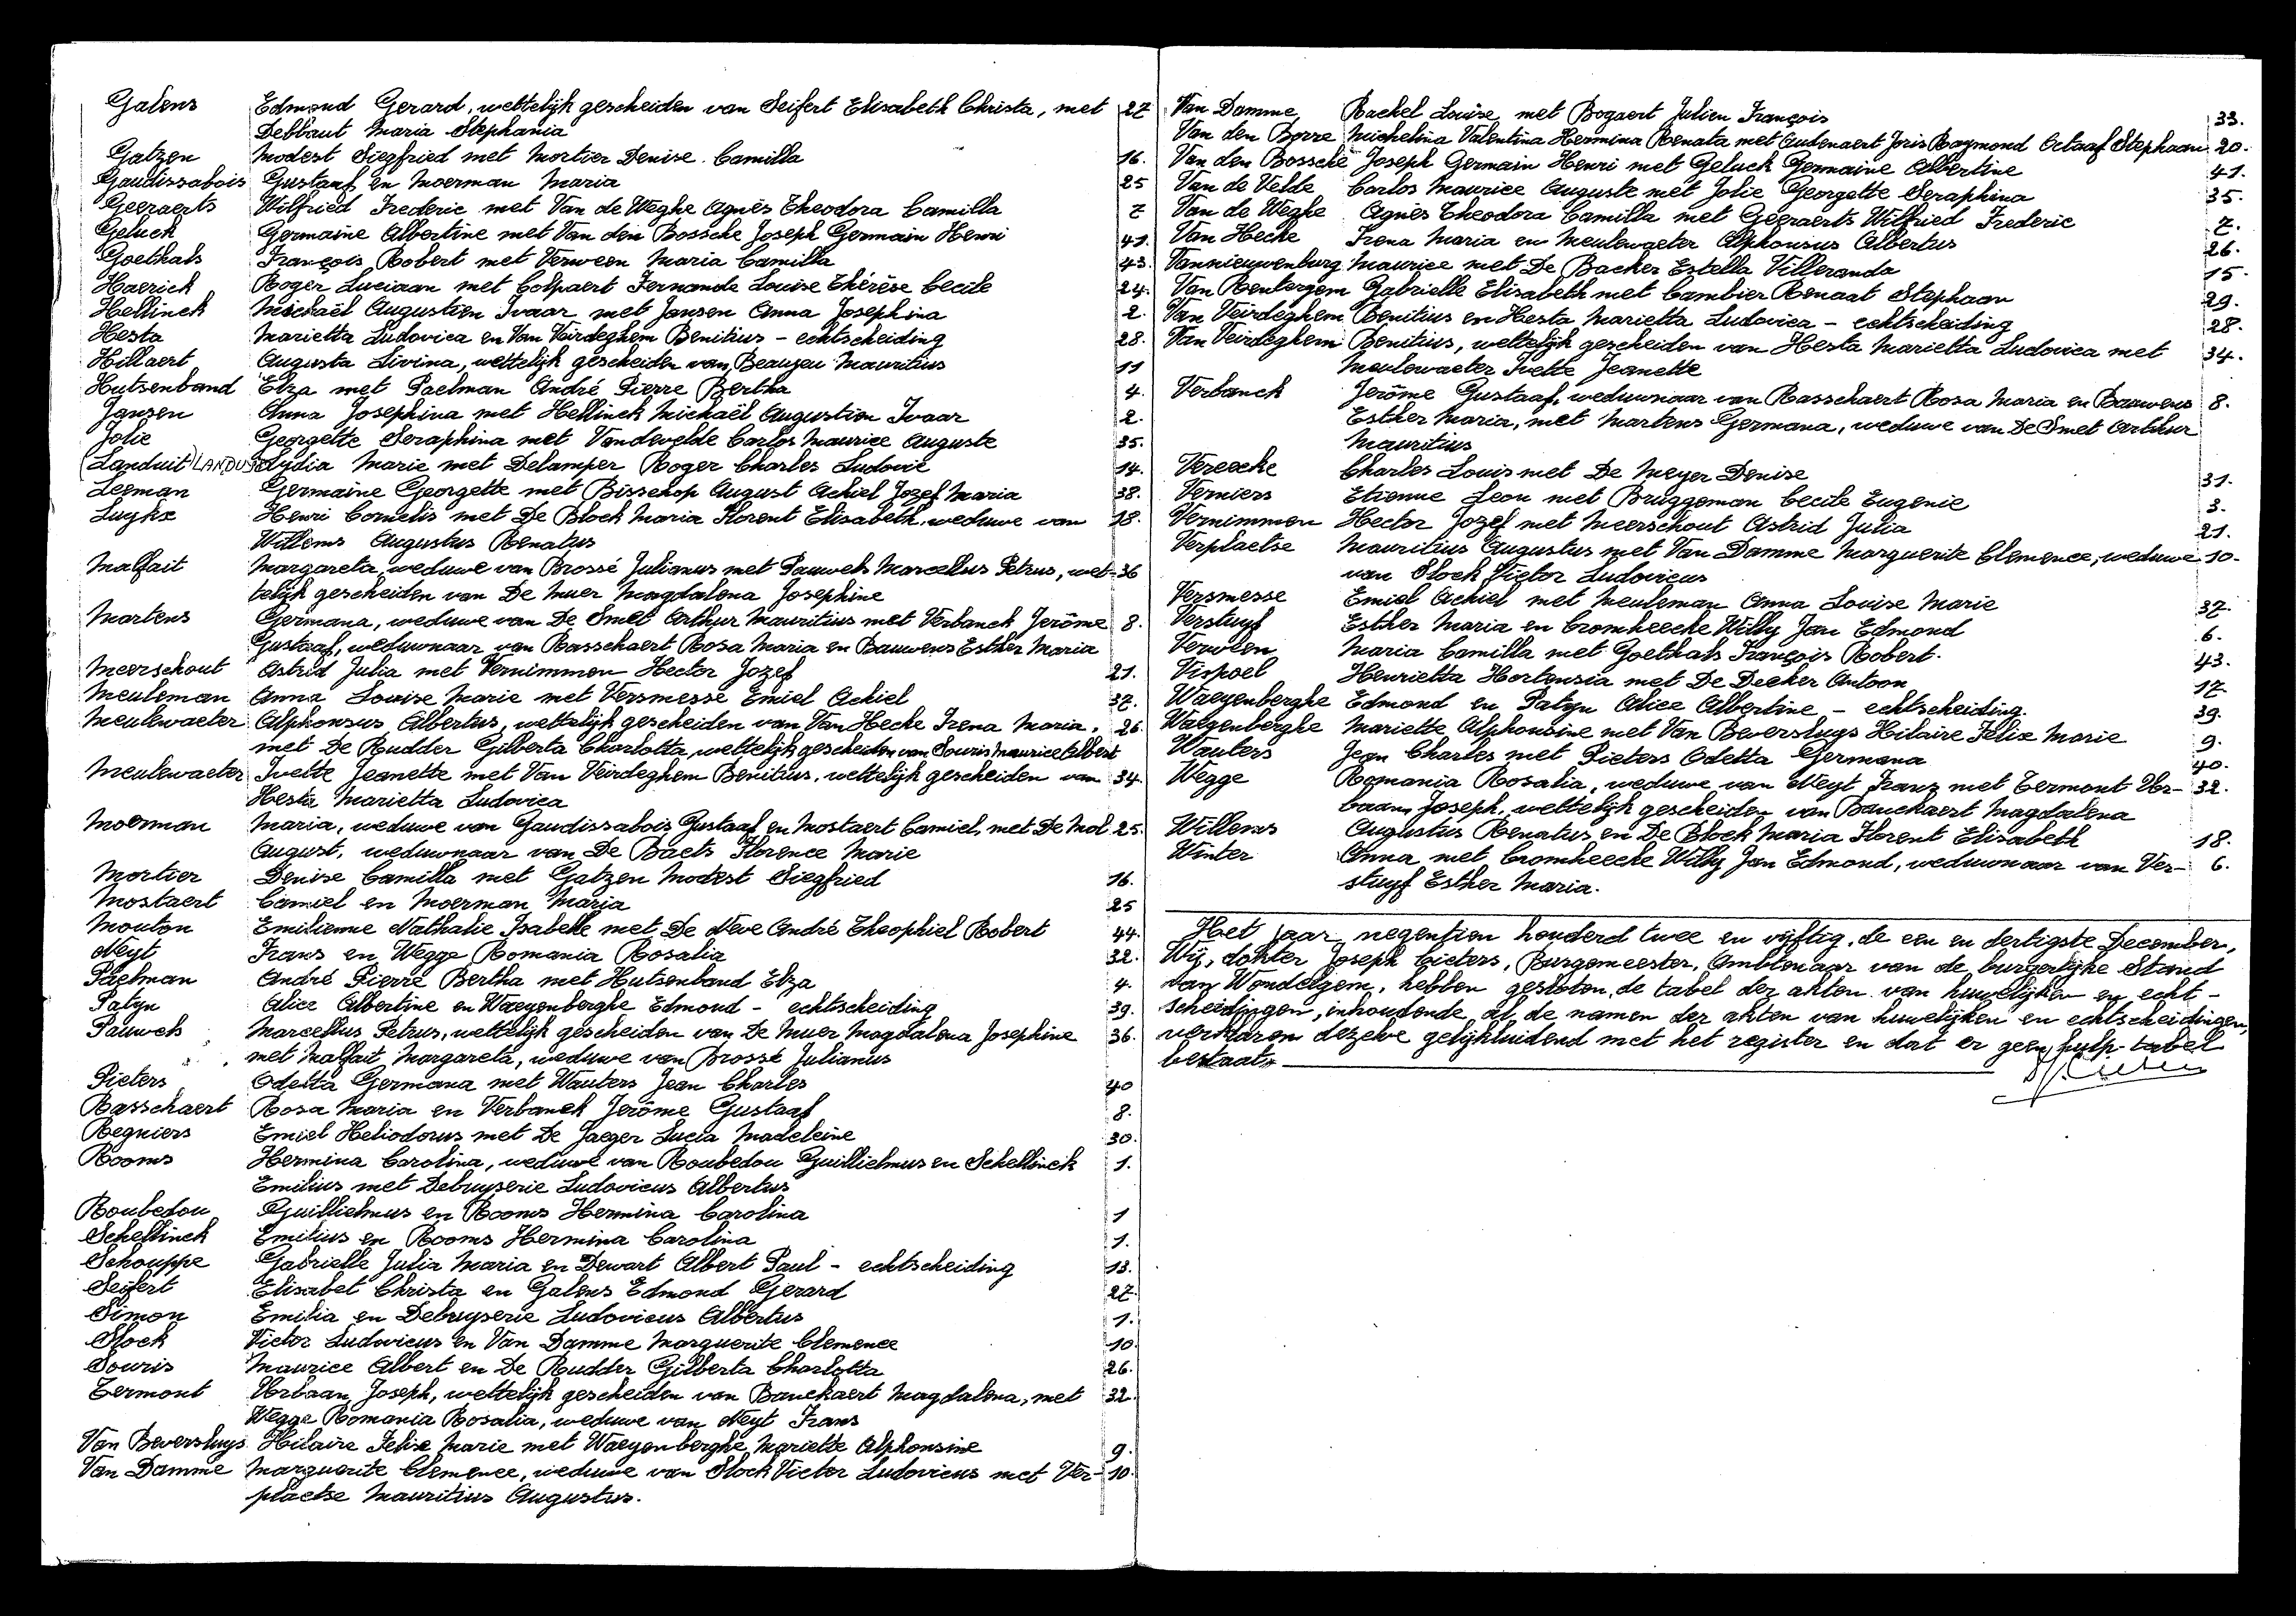 Galens Edmond Gerard, wettelijk gescheiden van Seifert Elisabeth Christa, met 27
Debbaut Maria Stephania
Gatzen Modest Siegfried met Mortier Denise Camilla 16.
Gaudissabois Gustaaf en Moerman Maria 25
Geeraerts Wilfried Frederic met Van de Weghe Agnès Theodora Camilla 7
Geluck Germaine Albertine met Van den Bossche Joseph Germain Henri 41.
Goethals François Robert met Verween Maria Camilla 43.
Haerick Roger Luciaan met Colpaert Fernande Louise Thérèse Cecile 24.
Hellinck Michaël Augustien Ivaar met Jansen Anna Josephina 2.
Hesta Marietta Ludovica en Van Veirdeghem Benitius - echtscheiding 28.
Hillaert Augusta Livina, wettelijk gescheiden van Beaugeu Mauritius 11
Hutsenband Elza met Paelman André Pierre Bertha 4.
Jansen Anna Josephina met Hellinck Michaël Augustien Ivaar 2.
Jolie Georgette Seraphina met Vandevelde Carlos Maurice Auguste 35.
(Landuit) LANDUYT Lydia Marie met Delamper Roger Charles Ludovic 14.
Leeman Germaine Georgette met Bisschop August Achiel Jozef Maria 38.
Luykx Henri Cornelis met De Block Maria Florent Elisabeth, weduwe van 18.
Willems Augustus Renatus
Malfait Margareta, weduwe van Brossé Julianus met Pauwels Marcellus Petrus, wet- 36
telijk gescheiden van De Muer Magdalena Josephine
Martens Germana, weduwe van De Smet Arthur Mauritius met Verbanck Jerôme 8.
Gustaaf, weduwnaar van Rasschaert Rosa Maria en Bauwens Esther Maria
Meerschout Astrid Julia met Vernimmen Hector Jozef 21.
Meuleman Anna Louise Marie met Versmesse Emiel Achiel 37.
Meulewaeter Alphonsus Albertus, wettelijk gescheiden van Van Hecke Irena Maria, 26.
met De Rudder Gilberta Charlotta, wettelijk gescheiden van Souris Maurice Albert
Meulewaeter Ivette Jeanette met Van Veirdeghem Benitius, wettelijk gescheiden van 34.
Hesta Marietta Ludovica
Moerman Maria, weduwe van Gaudissabois Gustaaf en Mostaert Camiel, met De Mol 25.
August, weduwnaar van De Baets Florence Marie
Mortier Denise Camilla met Gatzen Modest Siegfried 16.
Mostaert Camiel en Moerman Maria 25
Mouton Emilienne Nathalie Isabelle met De Neve André Theophiel Robert 44.
Neyt Frans en Wegge Romania Rosalia 32.
Paelman André Pierre Bertha met Hutsenband Elza 4.
Patyn Alice Albertine en Waeyenberghe Edmond - echtscheiding 39.
Pauwels Marcellus Petrus, wettelijk gescheiden van De Muer Magdalena Josephine 36.
met Malfait Margareta, weduwe van Brossé Julianus
Pieters Odetta Germana met Wauters Jean Charles 40
Rasschaert Rosa Maria en Verbanck Jerôme Gustaaf 8.
Regniers Emiel Heliodorus met De Jaeger Lucia Madeleine 30.
Rooms Hermina Carolina, weduwe van Roubedou Guillielmus en Schellinck 1.
Emilius met Debruyserie Ludovicus Albertus
Roubedou Guillielmus en Rooms Hermina Carolina 1
Schellinck Emilius en Rooms Hermina Carolina 1.
Schouppe Gabrielle Julia Maria en Dewart Albert Paul - echtscheiding 13.
Seifert Elisabet Christa en Galens Edmond Gerard 27
Simon Emilia en Debruyserie Ludovicus Albertus 1.
Slock Victor Ludovicus en Van Damme Marguerite Clemence 10
Souris Maurice Albert en De Rudder Gilberta Charlotta 26.
Termont Urbaan Joseph, wettelijk gescheiden van Banckaert Magdalena, met 32.
Wegge Romania Rosalia, weduwe van Neyt Frans
Van Beversluys Hilaire Felix Marie met Waeyenberghe Mariette Alphonsine 9.
Van Damme Marguerite Clemence, weduwe van Slock Victor Ludovicus met Ver- 10.
plaetse Mauritius Augustus.
Van Damme Rachel Louise met Bogaert Julien François 33.
Van den Borre Michelina Valentina Hermina Renata met Audenaert Joris Raymond Octaaf Stephaan 20.
Van den Bossche Joseph Germain Henri met Geluck Germaine Albertine 41.
Van de Velde Carlos Maurice Auguste met Jolie Georgette Seraphina 35.
Van de Weghe Agnès Theodora Camilla met Geeraerts Wilfried Frederic 7.
Van Hecke Irena Maria en Meulewaeter Alphonsus Albertus 26.
Vannieuwenburg Maurice met De Backer Estella Villeranda 15.
Van Renterghem Gabrielle Elisabeth met Cambier Renaat Stephaan 29.
Van Veirdeghem Benitius en Hesta Marietta Ludovica - echtscheiding 28.
Van Veirdeghem Benitius, wettelijk gescheiden van Hesta Marietta Ludovica met 34.
Meulewaeter Ivette Jeanette
Verbanck Jerôme Gustaaf, weduwnaar van Rasschaert Rosa Maria en Bauwens 8.
Esther Maria, met Martens Germana, weduwe van De Smet Arthur
Mauritius
Vereecke Charles Louis met De Meyer Denise 31.
Verniers Etienne Leon met Bruggeman Cecile Eugenie 3.
Vernimmen Hector Jozef met Meerschout Astrid Julia 21.
Verplaetse Mauritius Augustus met Van Damme Marguerite Clemence, weduwe 10.
van Slock Victor Ludovicus
Versmesse Emiel Achiel met Meuleman Anna Louise Marie 37.
Verstuyf Esther Maria en Cromheecke Willy Jan Edmond 6.
Verween Maria Camilla met Goethals François Robert. 43.
Vispoel Henrietta Hortensia met De Decker Antoon 17
Waeyenberghe Edmond en Patyn Alice Albertine - echtscheiding. 39.
Waeyenberghe Mariette Alphonsine met Van Beversluys Hilaire Felix Marie 9.
Wauters Jean Charles met Pieters Odetta Germana 40.
Wegge Romania Rosalia, weduwe van Neyt Frans met Termont Ur- 32.
baan Joseph, wettelijk gescheiden van Banckaert Magdalena
Willems Augustus Renatus en De Block Maria Florent Elisabeth 18.
Winter Anna met Cromheecke Willy Jan Edmond, weduwnaar van Ver- 6.
stuyf Esther Maria.
Het jaar negentien honderd twee en vijftig, de een en dertigste December,
Wij, dokter Joseph Cieters, Burgemeester, Ambtenaar van de burgerlijke Stand
van Wondelgem, hebben gesloten, de tabel der akten van huwelijken en echt-
scheidingen, inhoudende al de namen der akten van huwelijken en echtscheidingen,
verklaren dezelve gelijkluidend met het register en dat er geen hulp-tabel
bestaat.